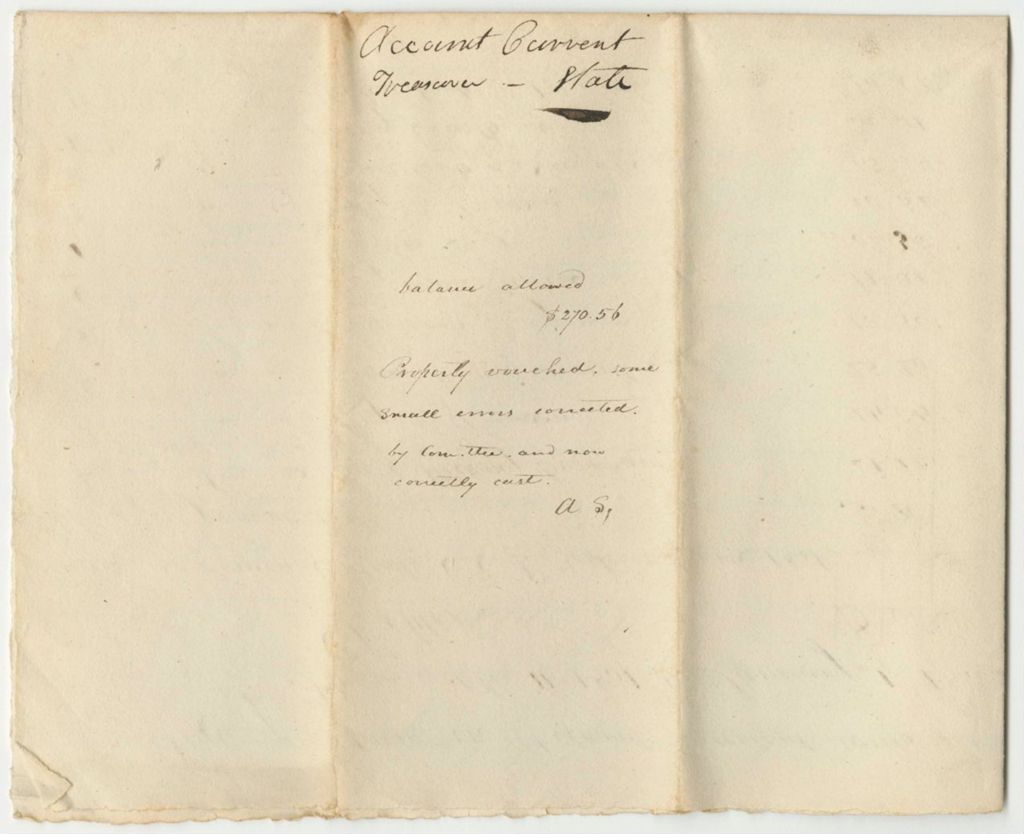 Account Current
Treasurer - State
balance allowed
$270.56
Properly vouched, some
small errors corrected.
by Com.ttee. and now
correctly cast.
A S,